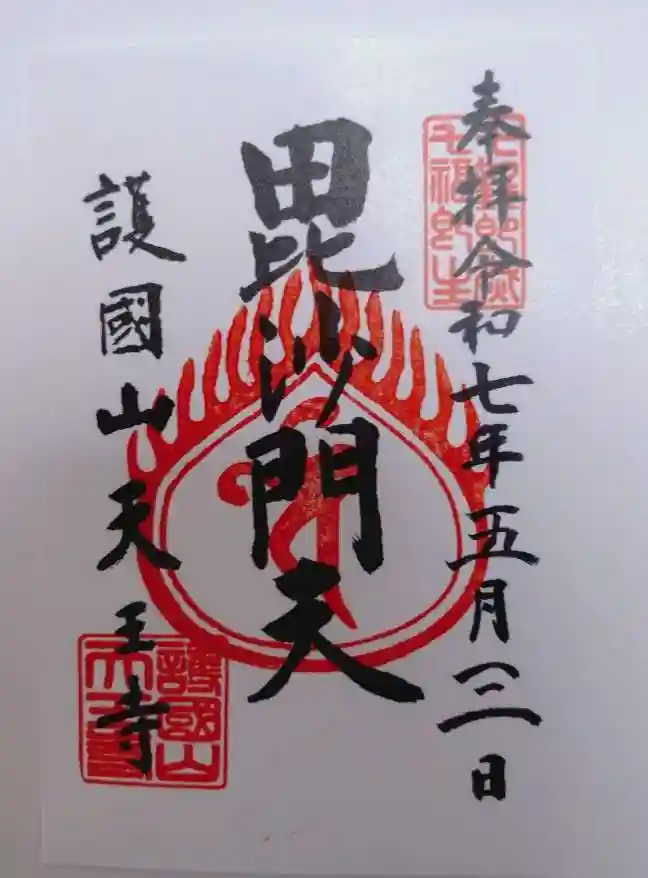 奉拝令和七年五月三日
毘沙門天
護國山天王寺
護國山
天王寺